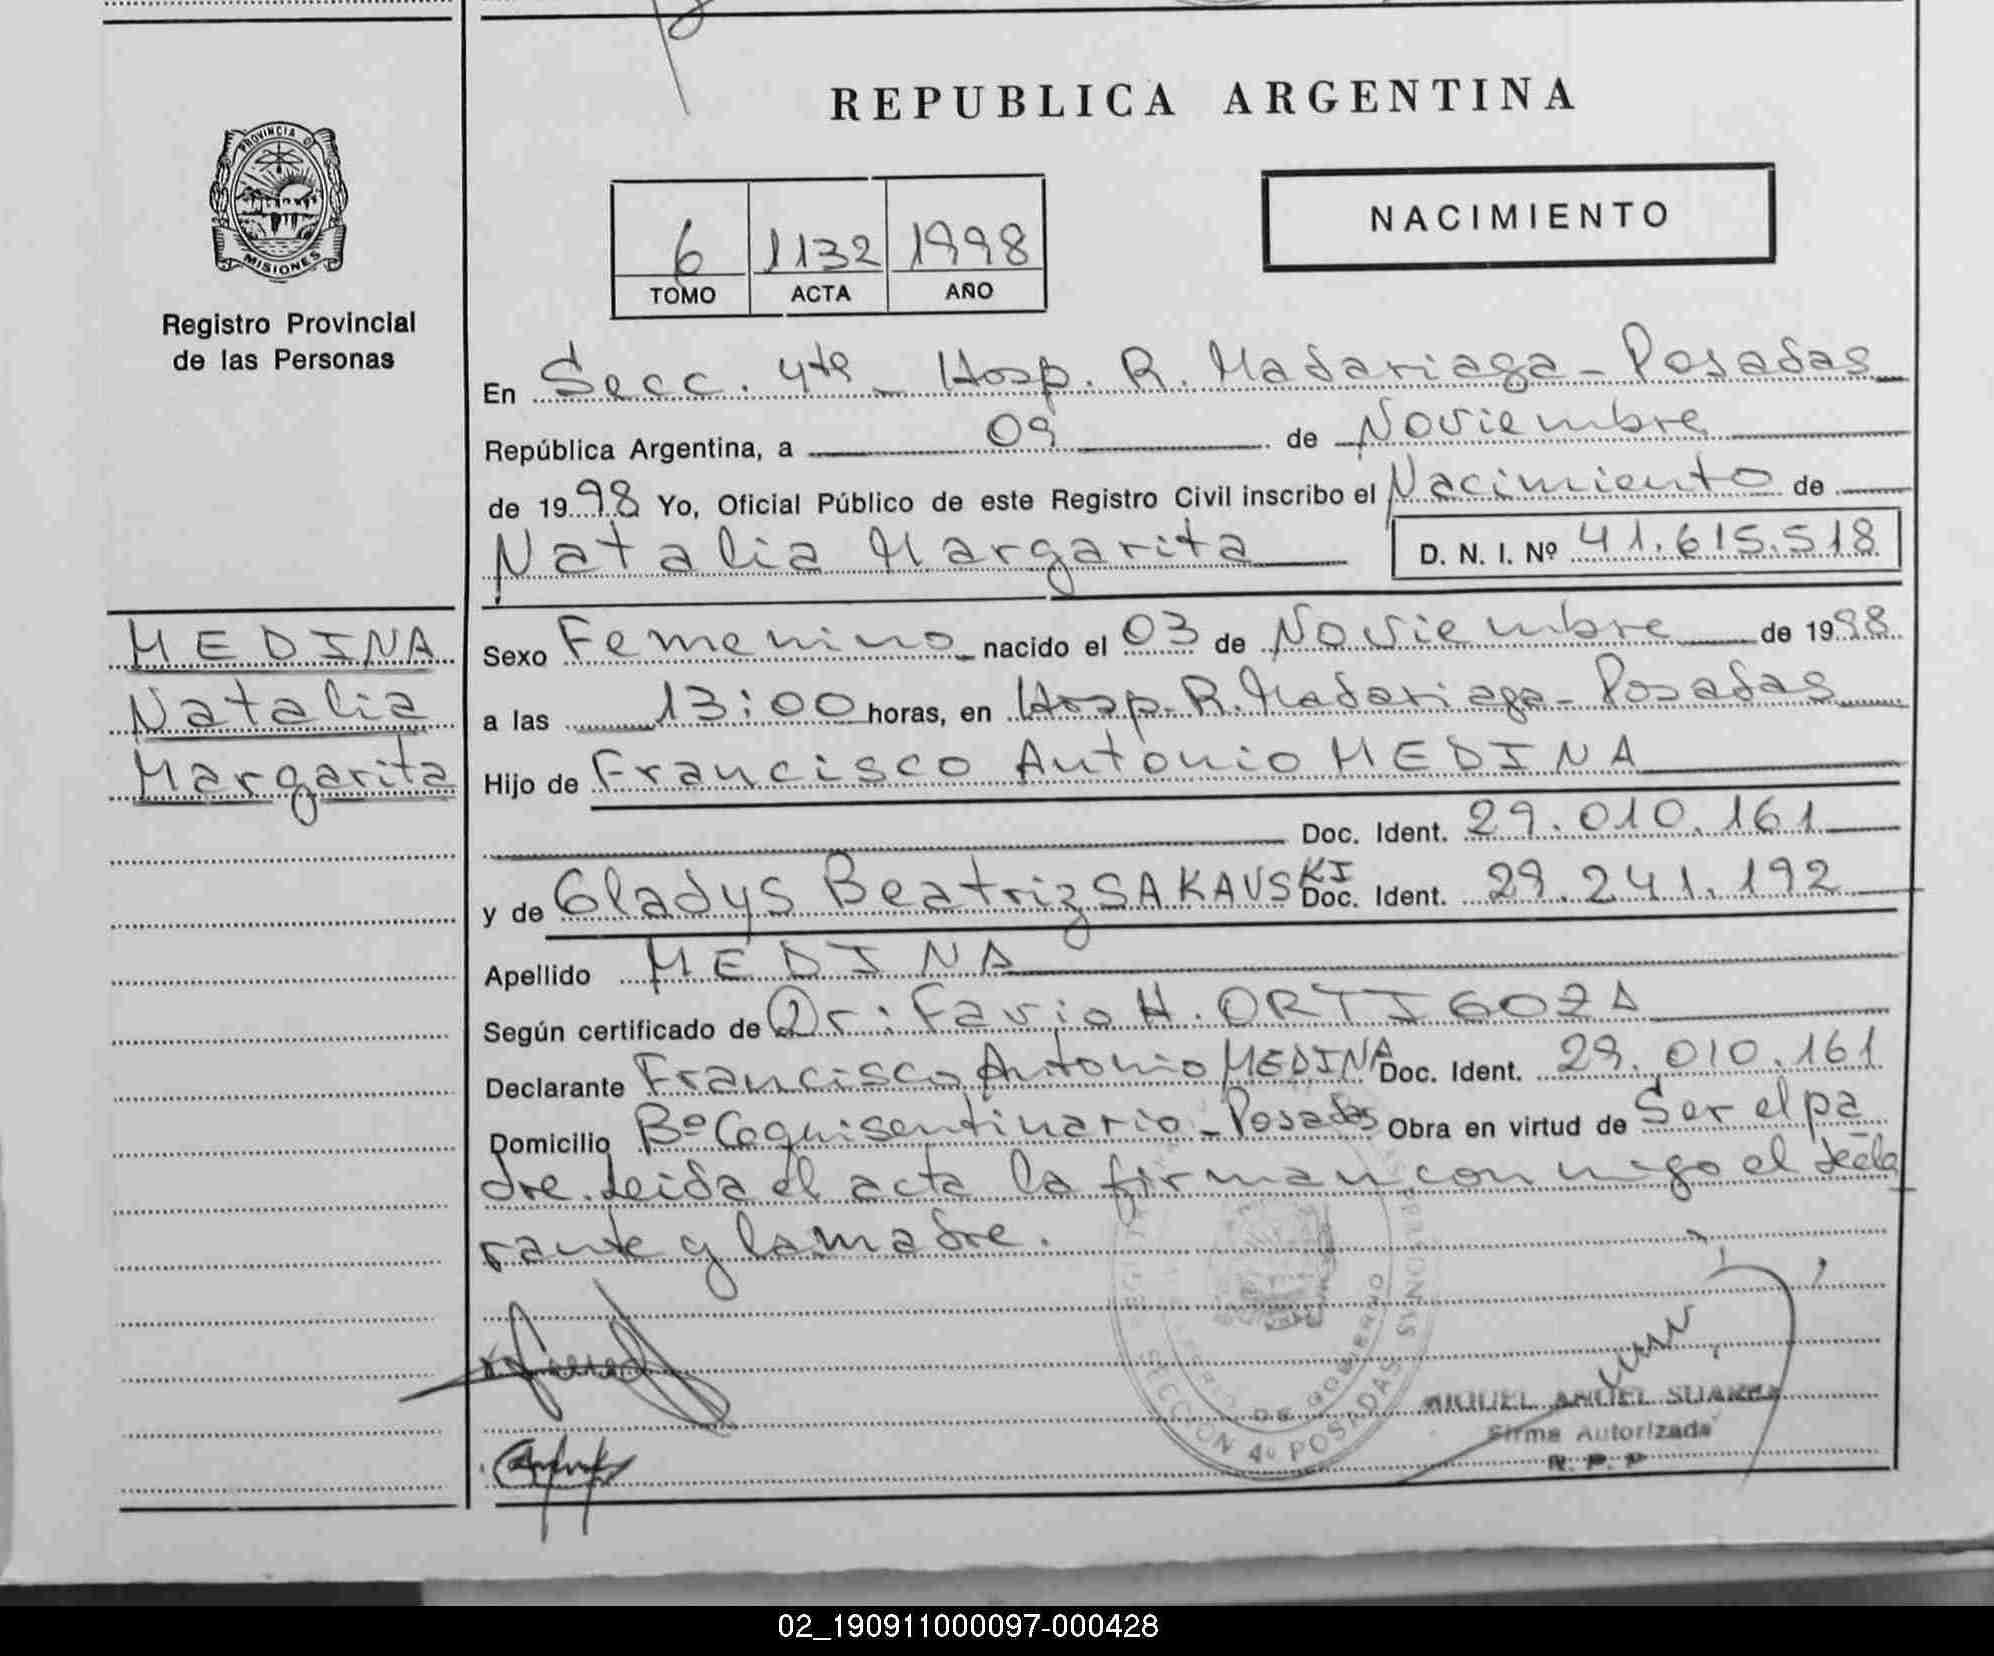 REPUBLICA ARGENTINA
PROVINCIA D
MISIONES
Registro Provincial
de las Personas
6 1132 1998
TOMO ACTA AÑO
NACIMIENTO
En Secc. 4ta - Hosp. R. Madariaga - Posadas
República Argentina, a 09 de Noviembre
de 1998 Yo, Oficial Público de este Registro Civil inscribo el Nacimiento de
Natalia Margarita D. N. I. Nº 41.615.518
MEDINA
Natalia
Margarita
Sexo Femenino nacido el 03 de Noviembre de 1998
a las 13:00 horas, en Hosp. R. Madariaga - Posadas
Hijo de Francisco Antonio MEDINA
Doc. Ident. 29.010.161
y de Gladys Beatriz SAKAVSKI Doc. Ident. 29.241.192
Apellido MEDINA
Según certificado de Dr. Favio H. ORTIGOZA
Declarante Francisco Antonio MEDINA Doc. Ident. 29.010.161
Domicilio Bº Coquisentinario - Posadas Obra en virtud de Ser el pa
dre. Leida el acta la firman con migo el decla
rante y la madre.
DE GOBIERNO
SECCION 4º POSADAS
MIGUEL ANGEL SUAREZ
Firma Autorizada
R. P. P
02_190911000097-000428